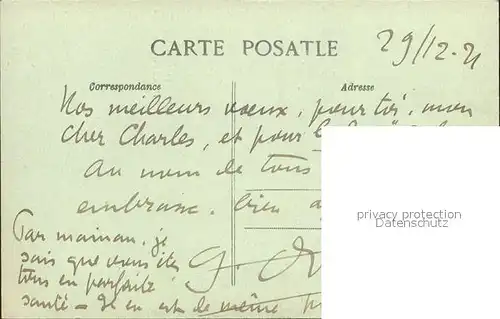 CARTE POSATLE
29/12-21
Correspondance
Adresse
Nos meilleurs voeux, pour toi, mon
cher Charles, et pour
Au nom de tous
embrasse. bien
Par maman. je
sais que vous êtes
tous en parfaite
santé - Il en est de même
privacy protection
Datenschutz